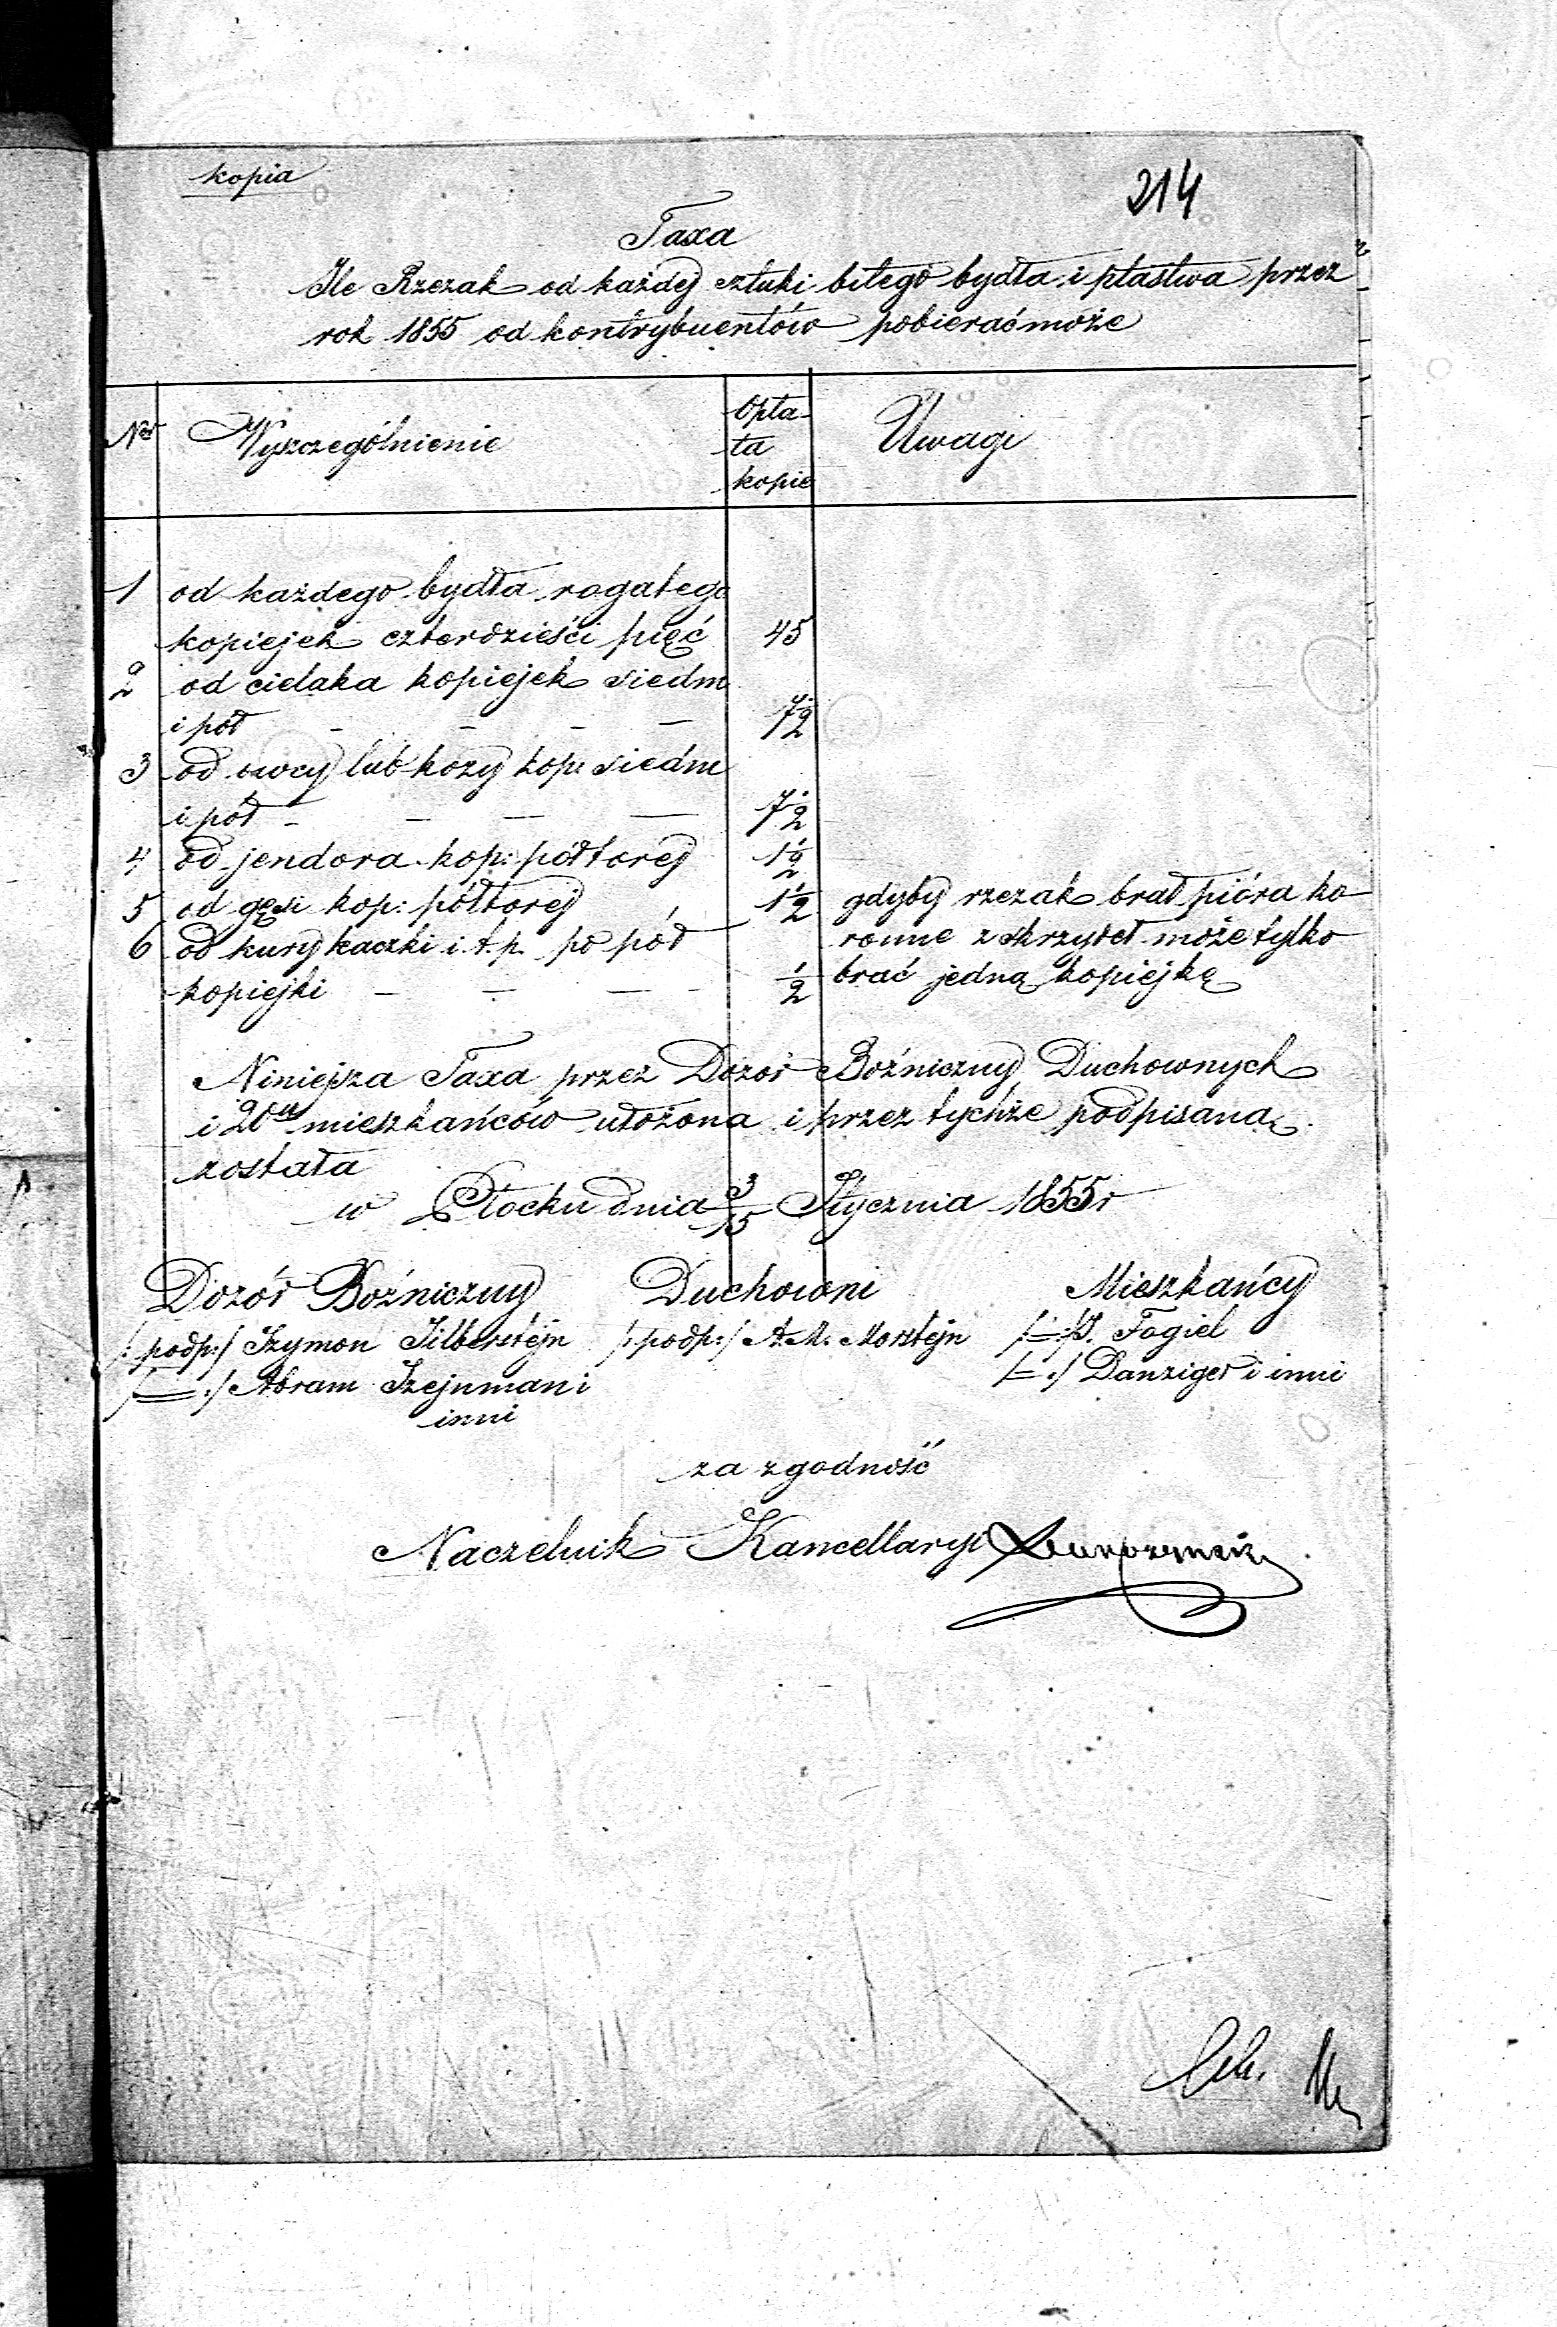 kopia
214
Taxa
Ile Rzezak od każdej sztuki bitego bydła i ptastwa przez
rok 1855 od kontrybuentów pobierać może
Nr Wyszczególnienie Opła- Uwagi
ta
kopie
1 od każdego bydła rogatego
kopiejek czterdzieści pięć 45
2 od cielaka kopiejek siedm
i pół — — — — 7 1/2
3 od owcy lub kozy kop: siedm
i pół — — — — 7 1/2
4 od jendora kop: półtorej 1 1/2
5 od gęsi kop: półtorej 1 1/2 gdyby rzezak brał pióra ko-
6 od kury kaczki i t.p. po pół ronne z skrzydeł może tylko
kopiejki — — — — 1/2 brać jedną kopiejkę
Niniejsza Taxa przez Dozór Bożniczny Duchownych
i 20tu mieszkańców ułożona i przez tychże podpisaną
została
w Płocku dnia 3/15 Stycznia 1855 r
Dozór Bożniczny Duchowni Mieszkańcy
/:podp:/ Szymon Silbersztejn /:podp:/ A. M. Morsztejn /:=:/ J. Fogiel
/:=:/ Abram Szejnman i /:=:/ Danziger i inni
inni
za zgodność
Naczelnik Kancellaryi